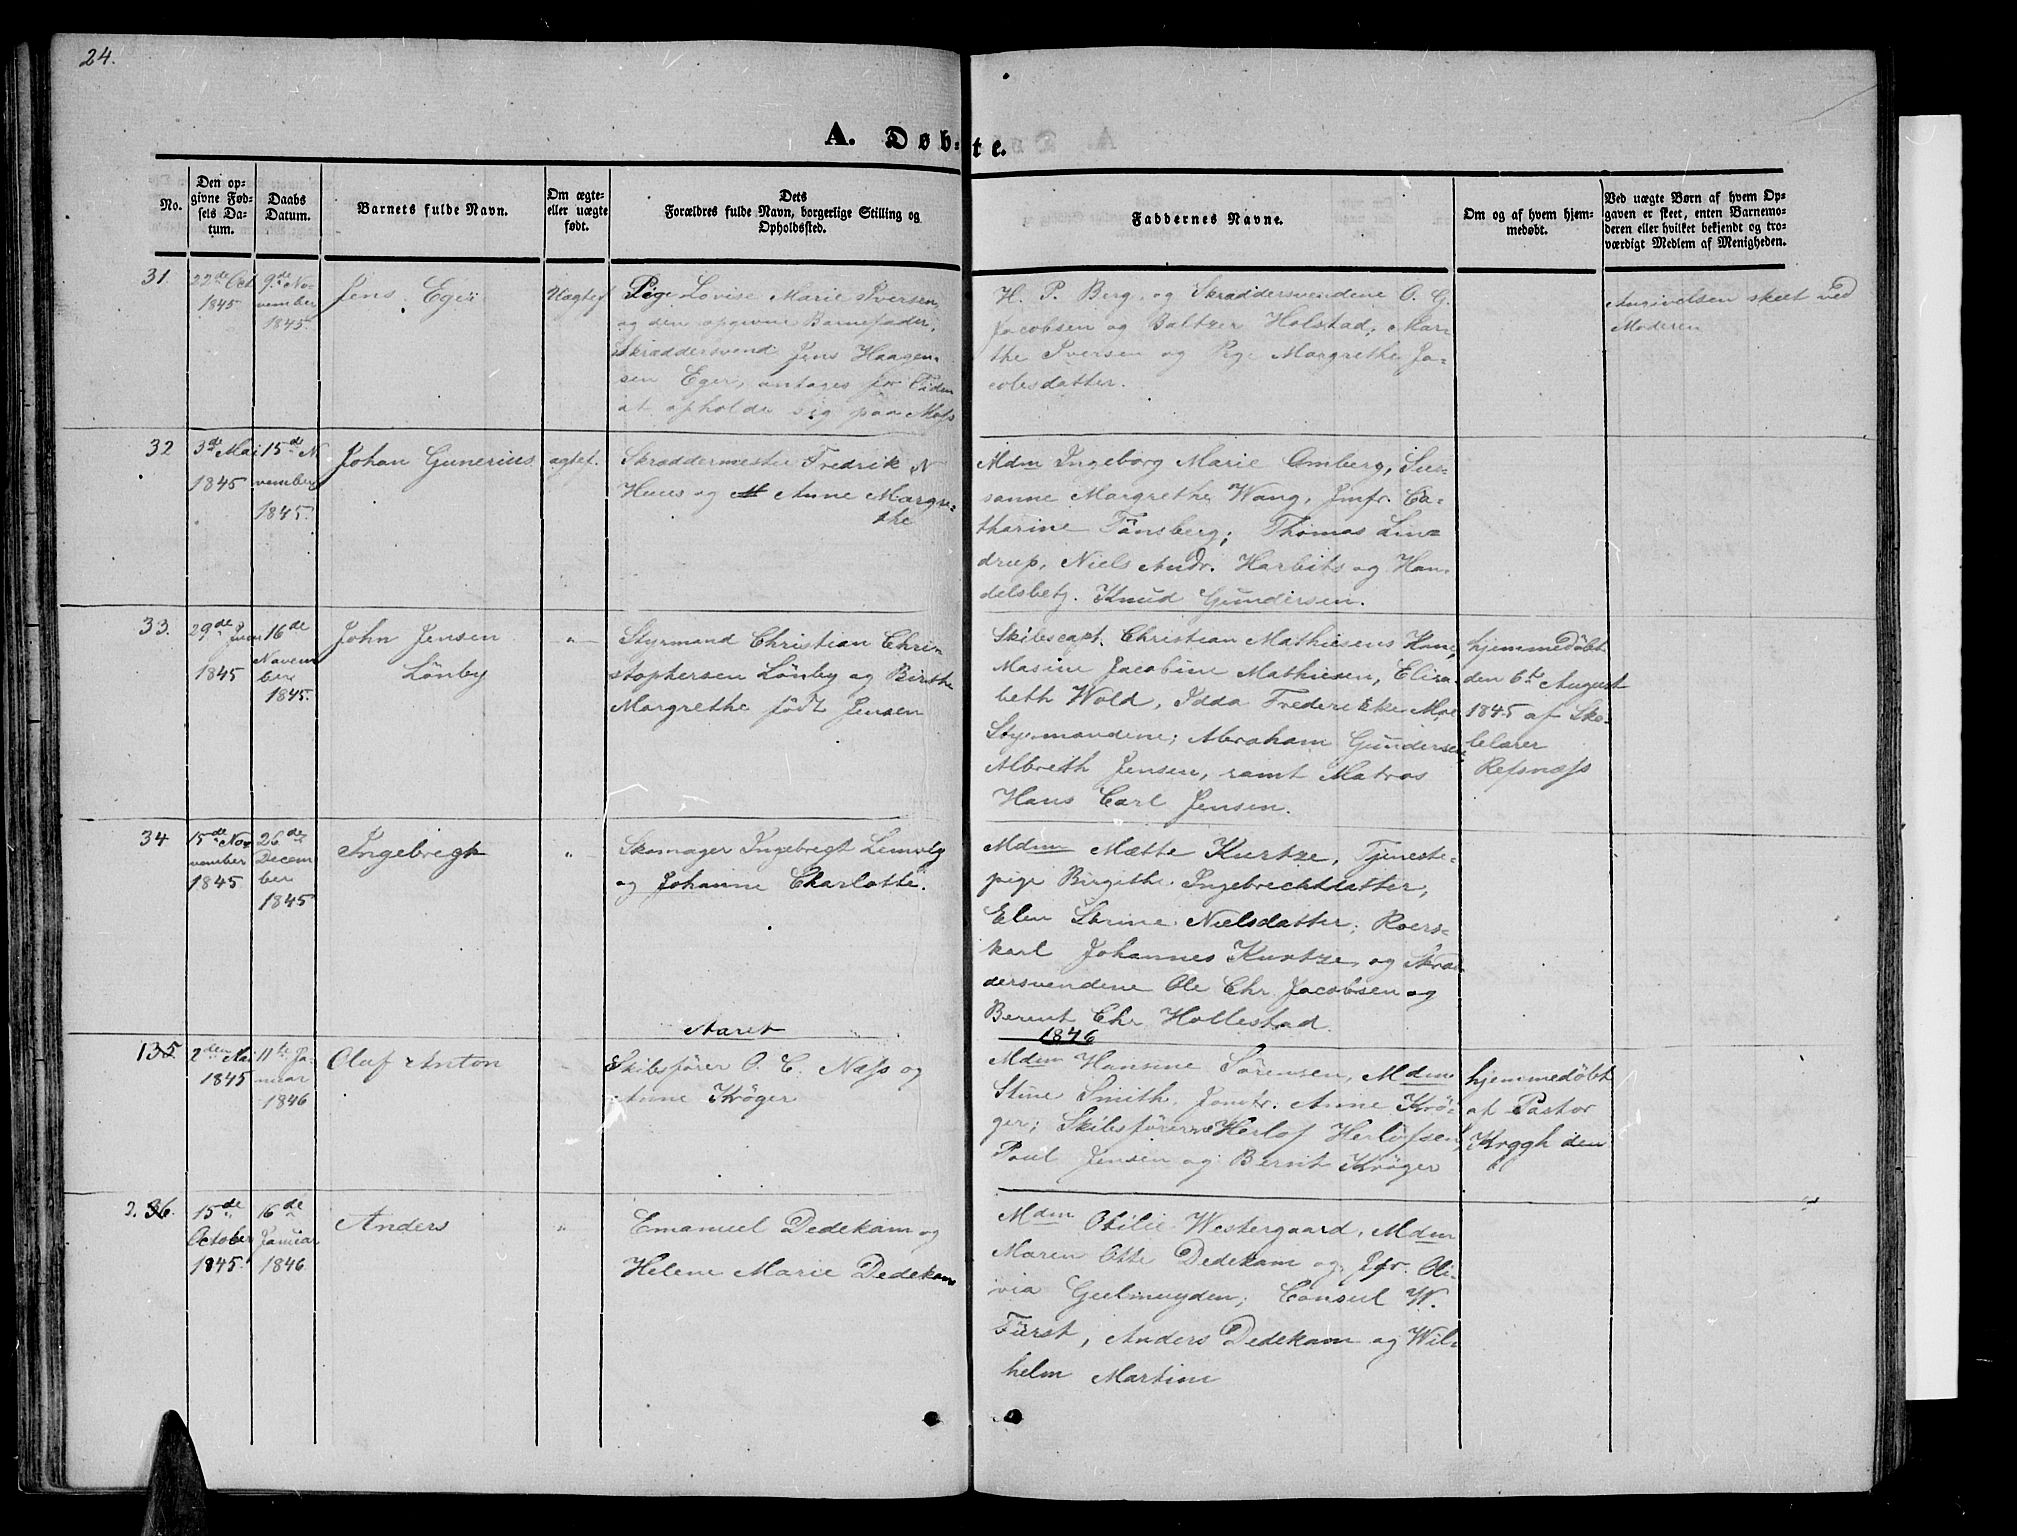 24.
A. Døb-te.
No.
Den op-
givne Fød-
sels Da-
tum.
Daabs
Datum.
Barnets fulde Navn.
Om ægte-
eller uægte
født.
Dets
Forældres fulde Navn, borgerlige Stilling og
Opholdssted.
Faddernes Navne.
Om og af hvem hjem-
medøbt.
Ved uægte Børn af hvem Op-
gaven er skeet, enten Barnemo-
deren eller hvilket bekjendt og tro-
værdigt Medlem af Menigheden.
31.
22de Oct
1845
9de No-
vember
1845.
Jens Eger
Uægtef.
Pige Lovise Marie Iversen,
og den opgivne Barnefader,
Skræddersvend Jens Haagen-
sen Eger, antages for Tiden
at opholde sig paa Moss
H. P. Berg, og Skræddersvendene O. G.
Jacobsen og Baltzer Holstad, Mar-
the Iversen og Pige Margrethe Ja-
cobsdatter.
Angivelsen skeet ved
Moderen
32
3de Mai
1845
15de N
vember
1845.
Johan Gunerius
ægtef.
Skræddermester Fredrik N
Huus og Anne Margre-
the
Mdm Ingeborg Marie Omberg, Su-
sanne Margrethe Wang, Jmfr. Ca-
tharine Tönsberg; Thomas Lin-
drup, Niels Andr. Harbits og Han-
delsbetj. Knud Gundersen.
33.
29de Juni
1845
16de
Novem
ber
1845.
John Jensen
Lönby
"
Styrmand Christian Chri-
stophersen Lönby og Birthe
Margrethe født Jensen
Skibscapt. Christian Mathiesens Kone,
Masine Jacobine Mathiesen, Elisa-
beth Wold, Idda Frederikke Moe
Styrmandene; Abraham Gundersen,
Albreth Jensen, samt Matros
Hans Carl Jensen.
hjemmedöbt
den 6te August
1845 af Sko-
lelærer
Refsnæss
34
15de No-
vember
1845
26de
Decem
ber
1845
Ingebregt
"
Skomager Ingebregt
og Johanne Charlotte.
Mdm Mætte Kurtze, Tjeneste-
pige Birgithe Ingebrechtdatter,
Elen Strine Nielsdatter; Roers-
karl Johannes Kurtze, og Skræ-
dersvendene Ole Chr Jacobsen og
Berent Chr Hollestad.
Aaret
1846
135
2den Mai
1845
11te Ja-
nuar
1846
Olaf Anton
Skibsfører O. C. Næss og
Anne Kröger
Mdm Hansine Sørensen, Mdm
Stine Smith, Jomfr. Anne Krö-
ger; Skibsförerne Herlof Herlofsen,
Poul Jensen og Bernt Kröger
hjemmedöbt
af Pastor
Krogh den
2. 36.
15de
October
1845.
16de
Januar
1846
Anders
"
Emanuel Dedekam og
Helene Marie Dedekam
Mdm Otilie Westergaard, Mdm
Maren Otte Dedekam og Jfr. Oli-
via Geelmuyden; Consul W.
Fürst, Anders Dedekam og Wil-
helm Martini